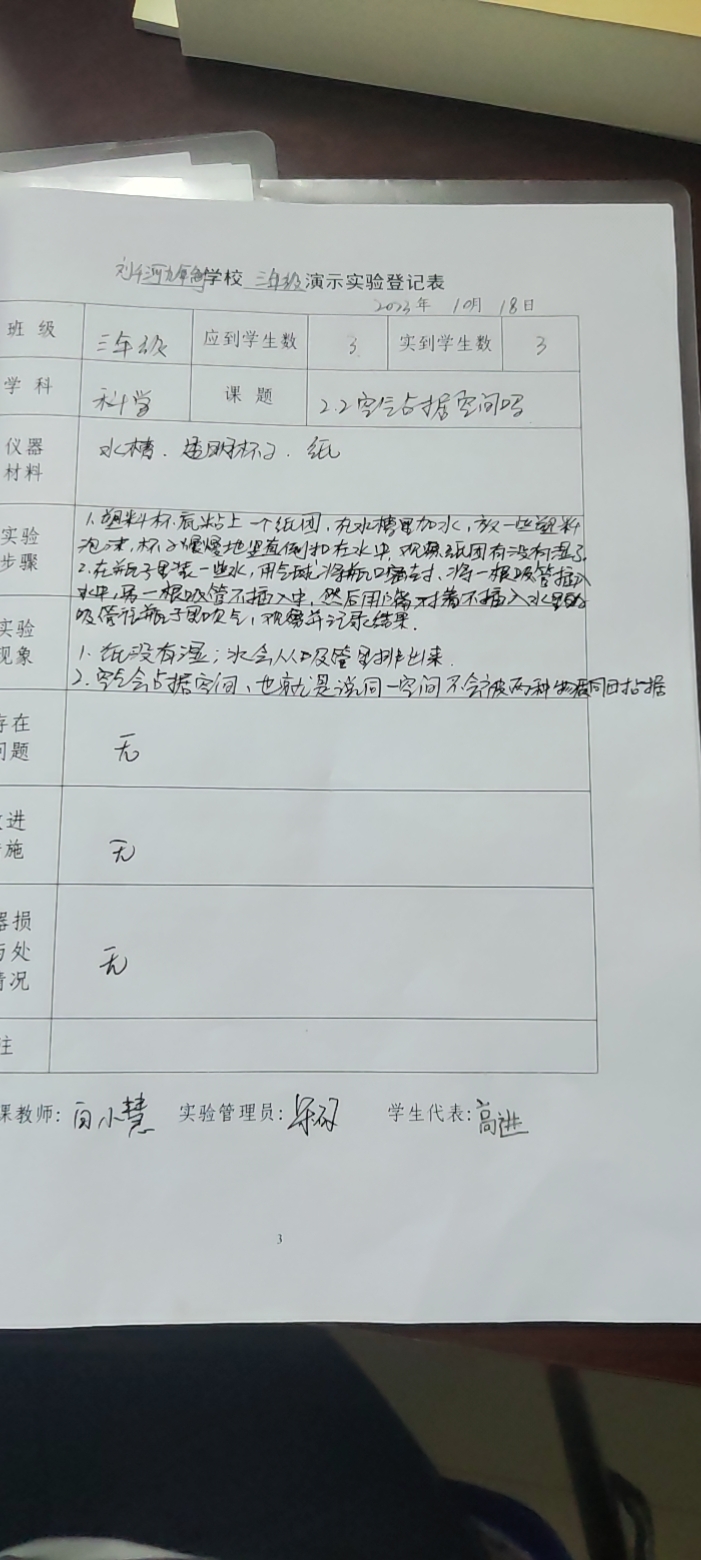 学校 三年级 演示实验登记表
2023年 10月 18日
班 级 三年级 应到学生数 3 实到学生数 3
学 科 科学 课 题 2.2空气占据空间吗
仪器 水槽、透明杯子、纸
材料
实验 1.塑料杯底粘上一个纸团,在水槽里加水,放一些塑料
步骤 泡沫,杯子慢慢地竖直倒扣在水中,观察纸团有没有湿了
2.在瓶子里装一些水,用气球将瓶口堵封、将一根吸管插入
水中,另一根吸管不插入中,然后用嘴对着不插入水里的
实验 吸管往瓶子里吹气,观察并记录结果.
现象 1.纸没有湿;水会从吸管里排出来.
2.空气会占据空间、也就是说同一空间不会被两种物质同时占据
存在
问题 无
改进
施 无
器损
与处 无
情况
注
课教师:白小慧 实验管理员: 学生代表:高进
3